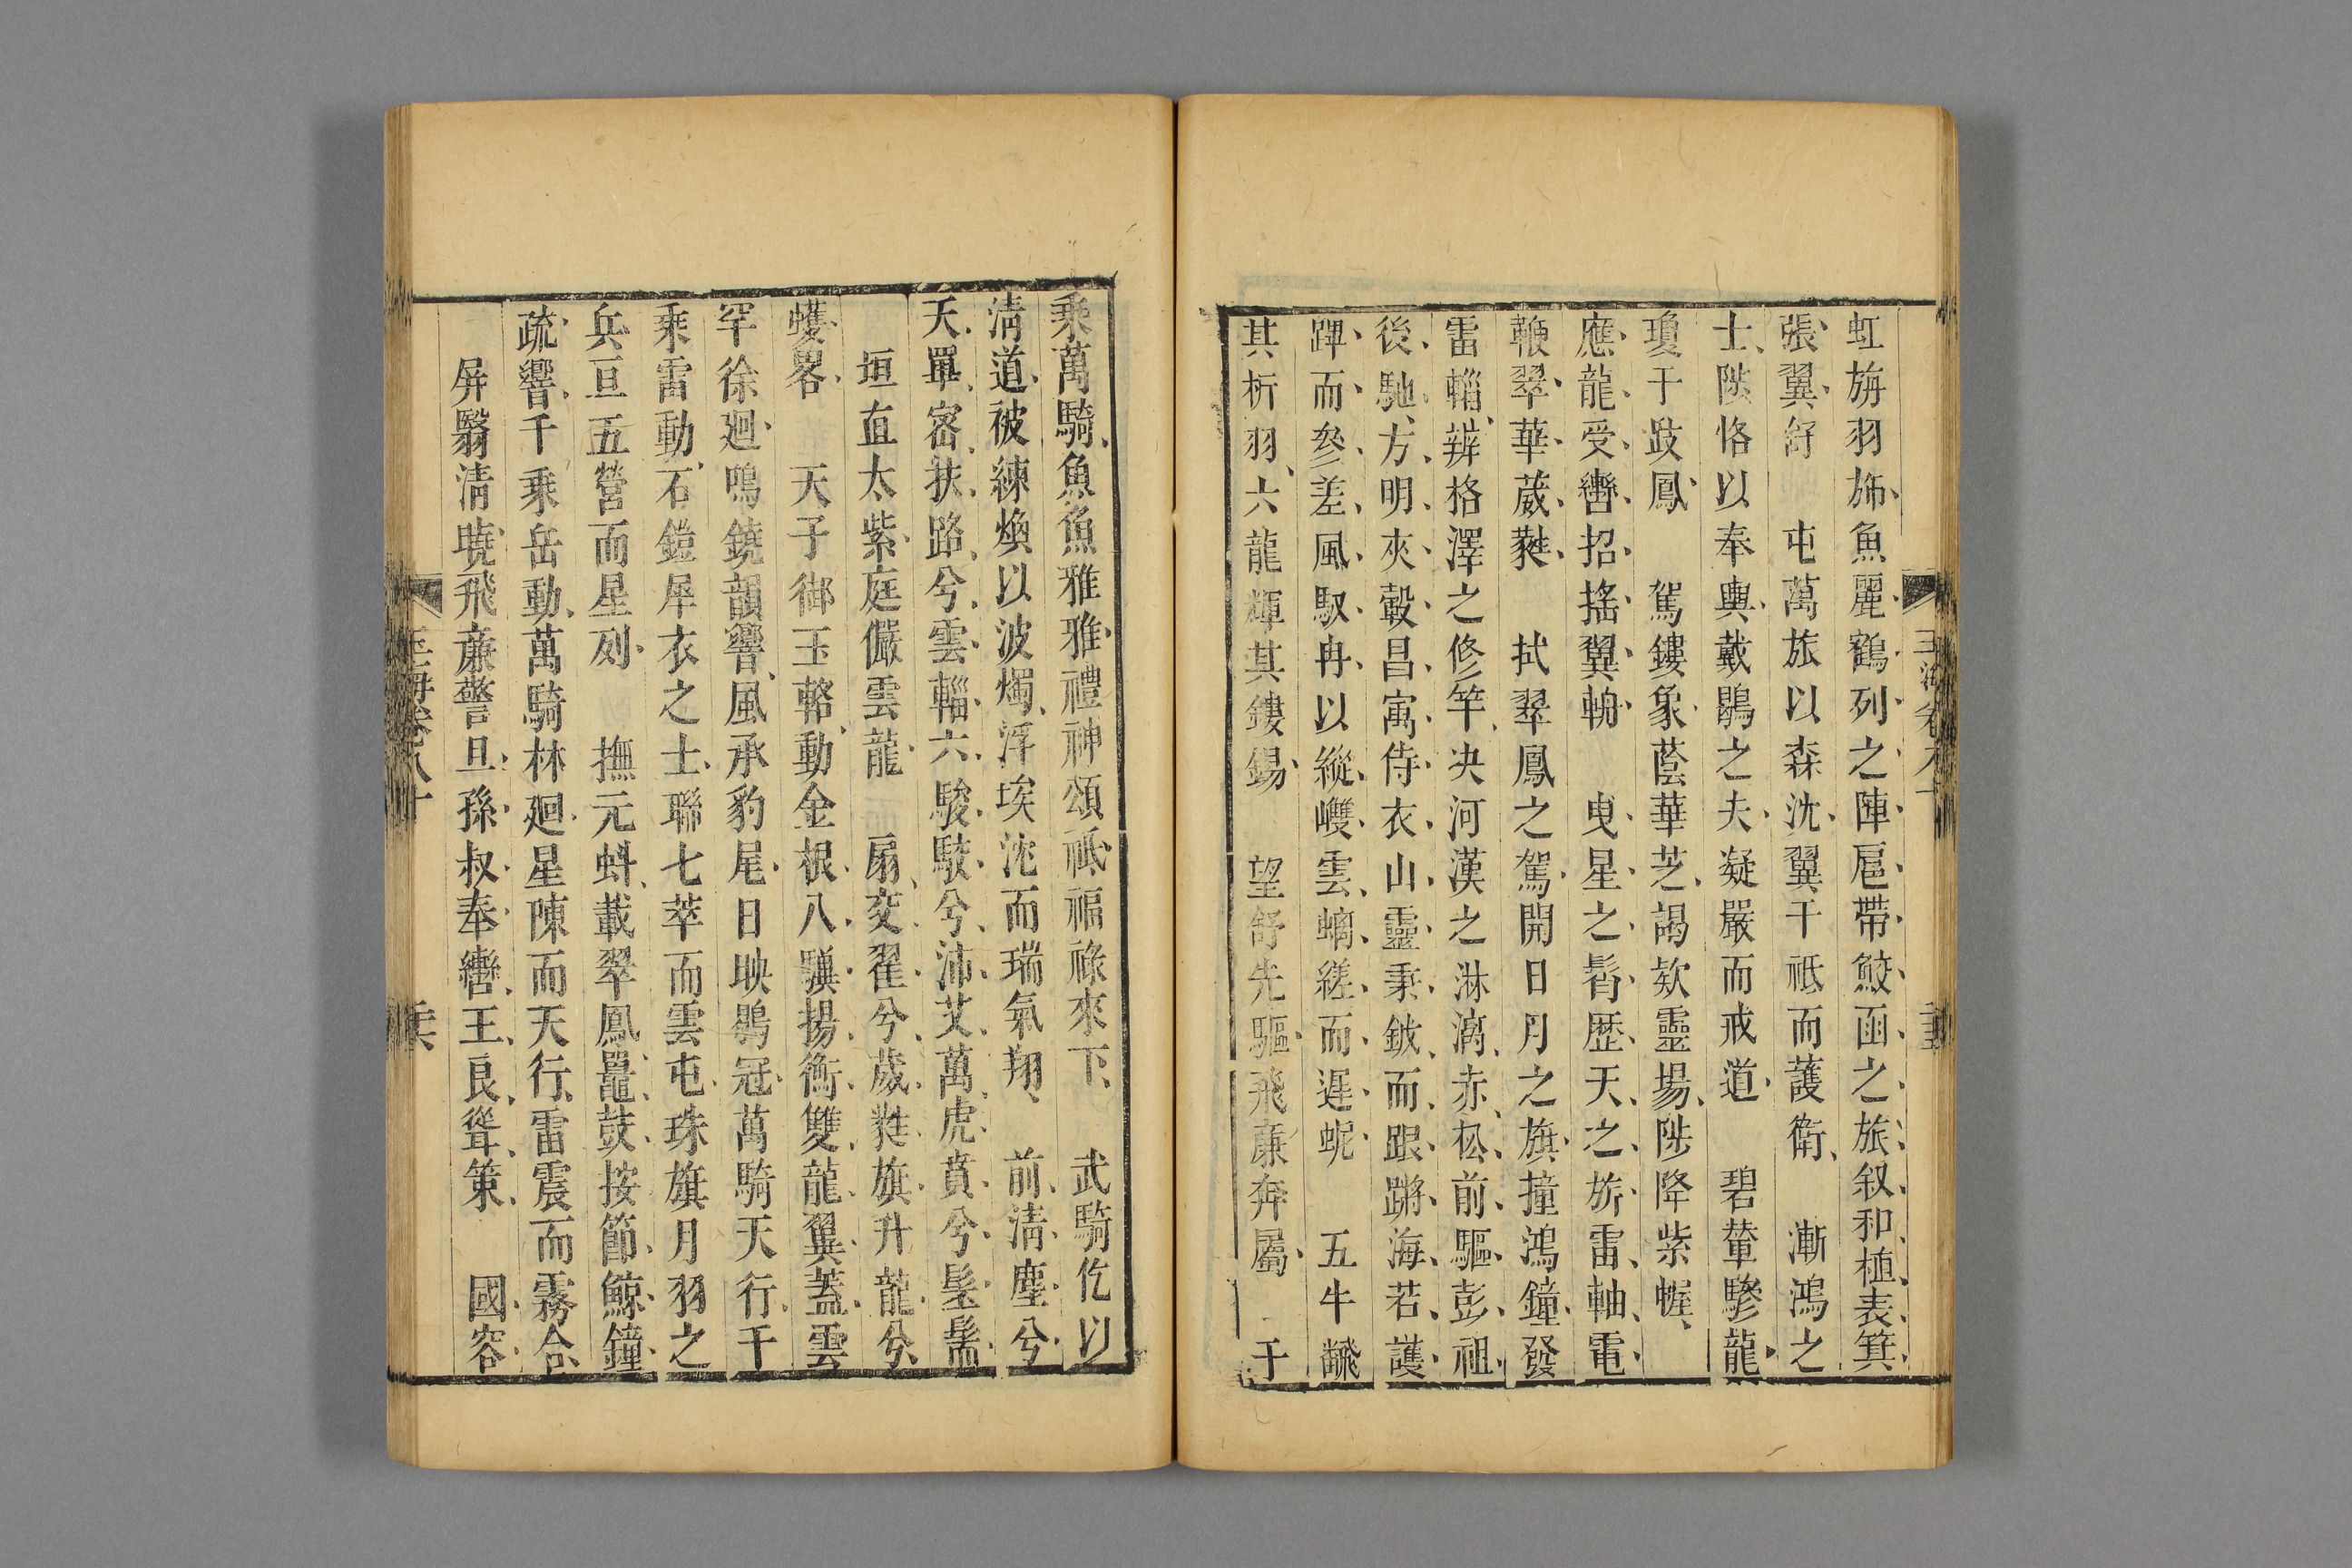 虹旃羽斾魚麗鶴列之陣扈帶鮫函之旅叙和植表箕
張翼舒　屯萬旅以森沈翼千祗而護衛　漸鴻之
士陛恪以奉輿戴鶡之夫凝嚴而戒道　碧輦驂龍
瓊干跂鳳　駕鏤象蔭華芝謁欸靈場陟降紫幄
應龍受轡招搖翼輈　曳星之髾歷天之旂雷軸電
鞭翠華葳蕤　拭翠鳳之駕開日月之旗撞鴻鐘發
雷輜辨格澤之修竿决河漢之淋漓赤松前驅彭祖
後馳方明夾轂昌寓侍衣山靈秉鈹而踉蹡海若護
蹕而參差風馭冉以縱嶐雲螭縒而遲蜺　五牛
其析羽六龍輝其鏤錫　望舒先驅飛廉奔屬　千
乘萬騎魚魚雅雅禮神頌祗福祿來下　武騎仡以
清道被練煥以波燭浮埃沱而瑞氣翔　前清塵兮
天罼審扶路兮雲輜六駿駮兮沛艾萬虎賁兮髬髵
垣直太紫庭儼雲龍　扇交翟兮葳蕤旗升龍兮
蠖畧　天子御玉輅動金根八驥揚衡雙龍翼蓋雲
罕徐廻鳴鐃韻響風承豹尾日映鶡冠萬騎天行千
乘雷動石鎧犀衣之士聯七萃而雲屯珠旗月羽之
兵亘五營而星列　撫元蚪載翠鳳鼉鼓按節鯨鐘
疏響千乘岳動萬騎林廻星陳而天行雷震而霧合
屏翳清曉飛廉警旦孫叔奉轡王良聳策　國容